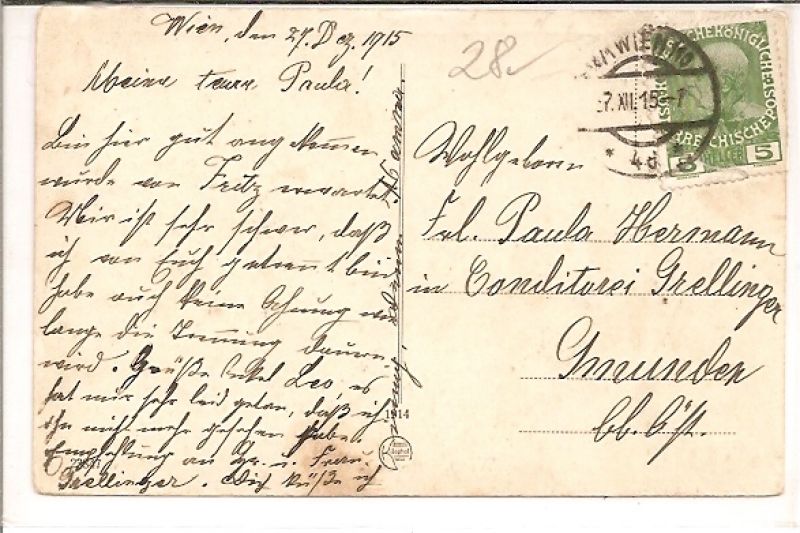 Wien, den 27. Dez. 1915
Meine teure Paula!
Bin hier gut angekommen
wurde von Fritz erwartet.
Mir ist sehr schwer, daß
ich von Euch getrennt bin
habe auch keine Ahnung wie
lange die Trennung dauern
wird. Grüße Onkel Leo, es
hat mir sehr leid getan, daß ich
ihn nicht mehr gesehen habe.
Empfehlung an Hr. u. Frau
Grellinger. Dich küße ich
28.
WIEN
7. XII. 15
* 4d
5 HELLER 5
Wohlgeboren
Frl. Paula Hermann
in Conditorei Grellinger
Gmunden
Ob. Öst.
1914